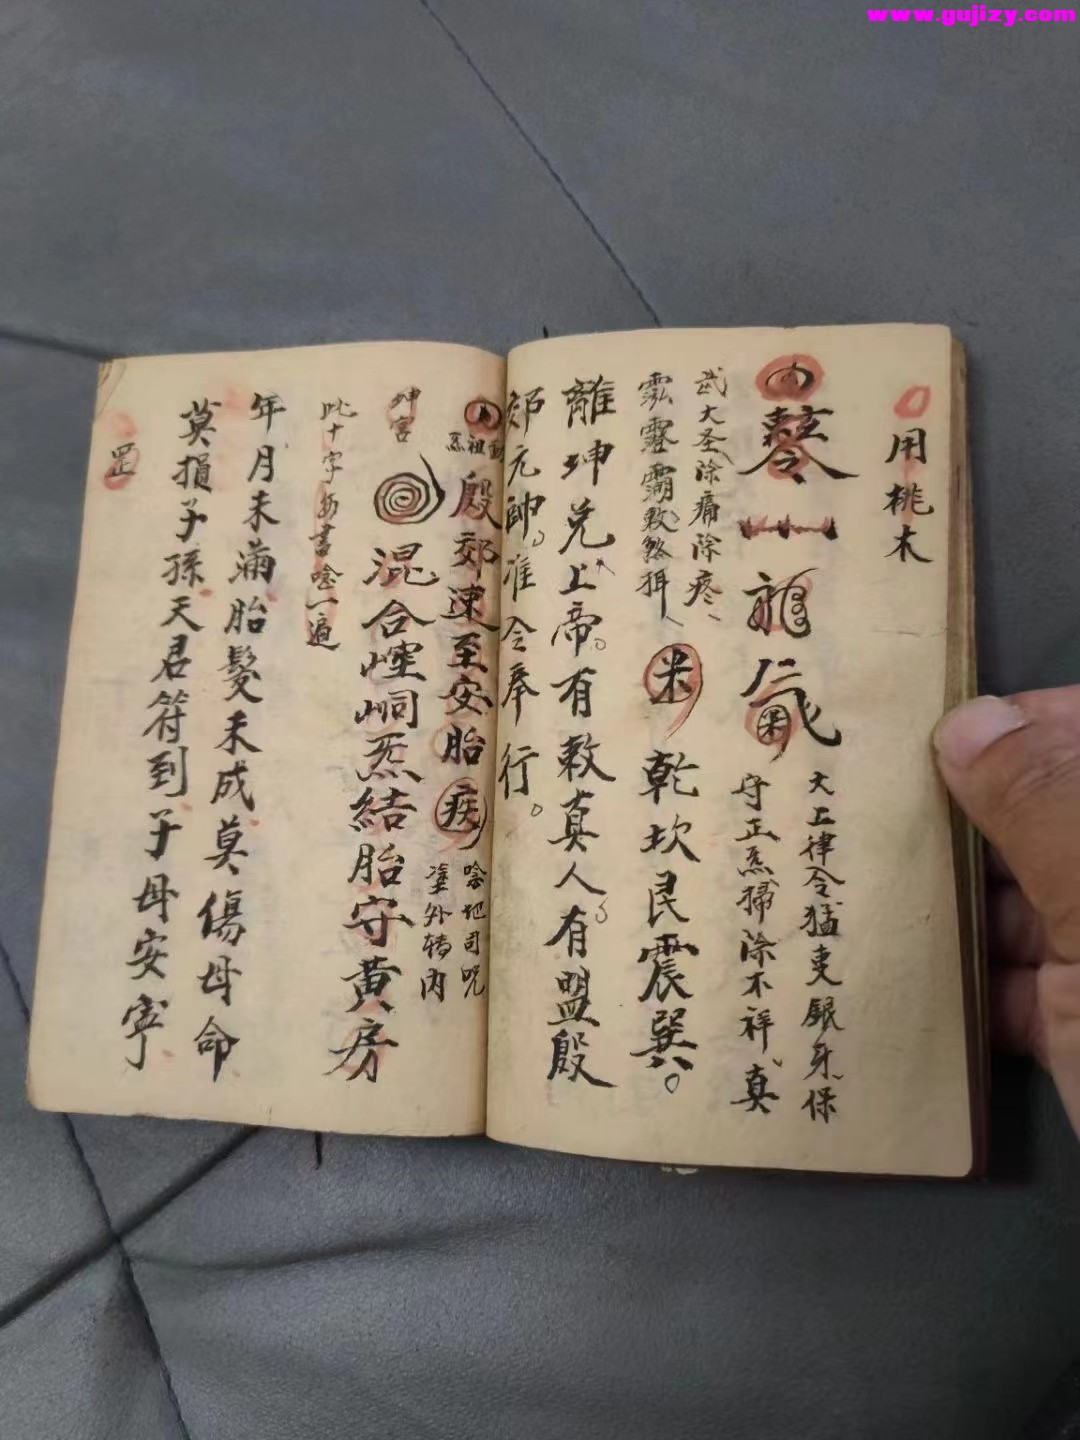 www.gujizy.com
用桃木
大上律令猛吏銀牙保
守正炁掃除不祥真
武大圣除痛除疼
敕煞
米
乾坎艮震巽
離坤兑上帝有敕真人有盟殷
郊元帥准令奉行
祖炁
殷郊速至安胎
唸地司咒
塗外轉内
坤宮
混合崆峒炁結胎守黄房
此十字每書唸一遍
年月未滿胎髮未成莫傷母命
莫損子孫天君符到子母安寧
罡